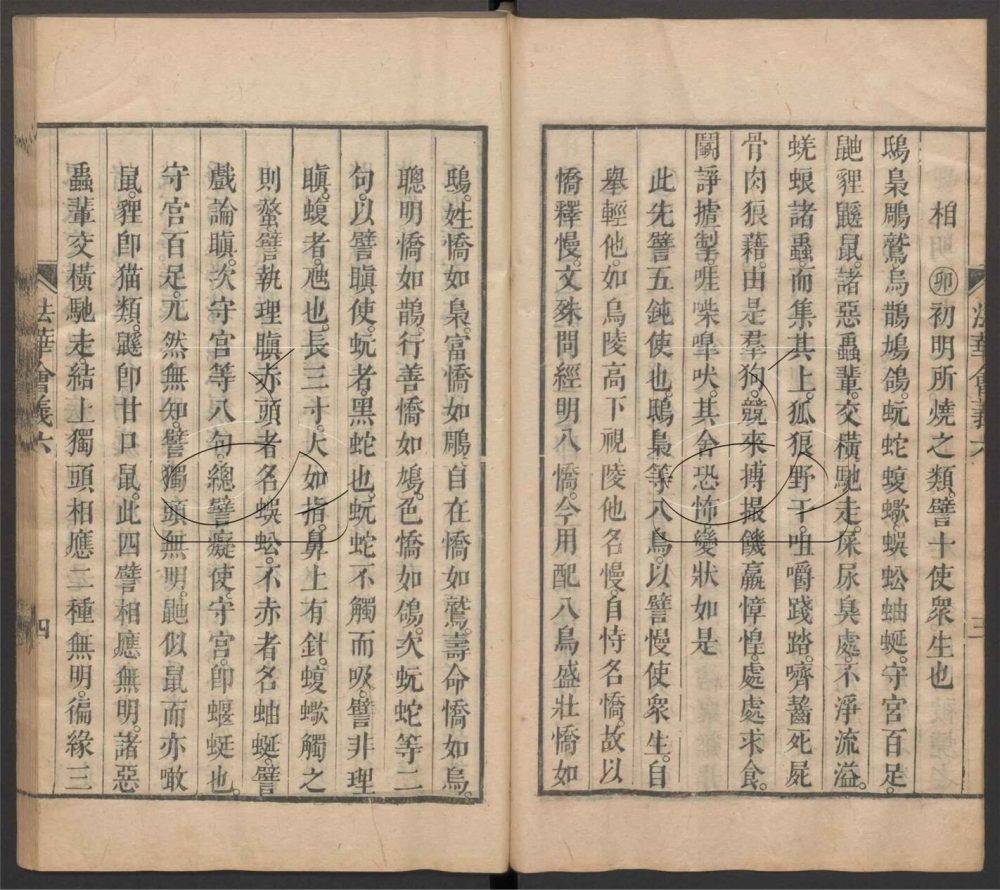 相明㊞初明所燒之類。譬十使衆生也
鴟梟鵰鷲。烏鵲鳩鴿。蚖蛇蝮蠍。蜈蚣蚰蜒。守宮百足。
鼬貍鼷鼠。諸惡蟲輩。交橫馳走。屎尿臭處。不淨流溢。
蜣蜋諸蟲。而集其上。狐狼野干。咀嚼踐踏。嚌齧死屍
骨肉狼藉。由是羣狗。競來搏撮。饑羸慞惶。處處求食。
鬭諍摣掣。啀喍嘷吠。其舍恐怖。變狀如是
此先譬五鈍使也。鴟梟等八鳥。以譬慢使衆生。自
舉輕他。如鳥陵高下視。陵他名慢。自恃名憍。故以
憍釋慢。文殊問經明八憍。今用配八鳥。盛壯憍如
鴟。姓憍如梟。富憍如鵰。自在憍如鷲。壽命憍如烏。
聰明憍如鵲。行善憍如鳩。色憍如鴿。次蚖蛇等二
句。以譬瞋使。蚖者。黑蛇也。蚖蛇不觸而吸。譬非理
瞋。蝮者。虺也。長三寸。大如指。鼻上有針。蝮蠍觸之
則螫。譬執理瞋。赤頭者名蜈蚣。不赤者名蚰蜒。譬
戲論瞋。次守宮等八句。總譬癡使。守宮。卽蝘蜓也。
守宮百足。兀然無知。譬獨頭無明。鼬似鼠而亦噉
鼠。貍卽猫類。鼷卽甘口鼠。此四譬相應無明。諸惡
蟲輩交橫馳走。結上獨頭相應二種無明。徧緣三
法華會義六
四